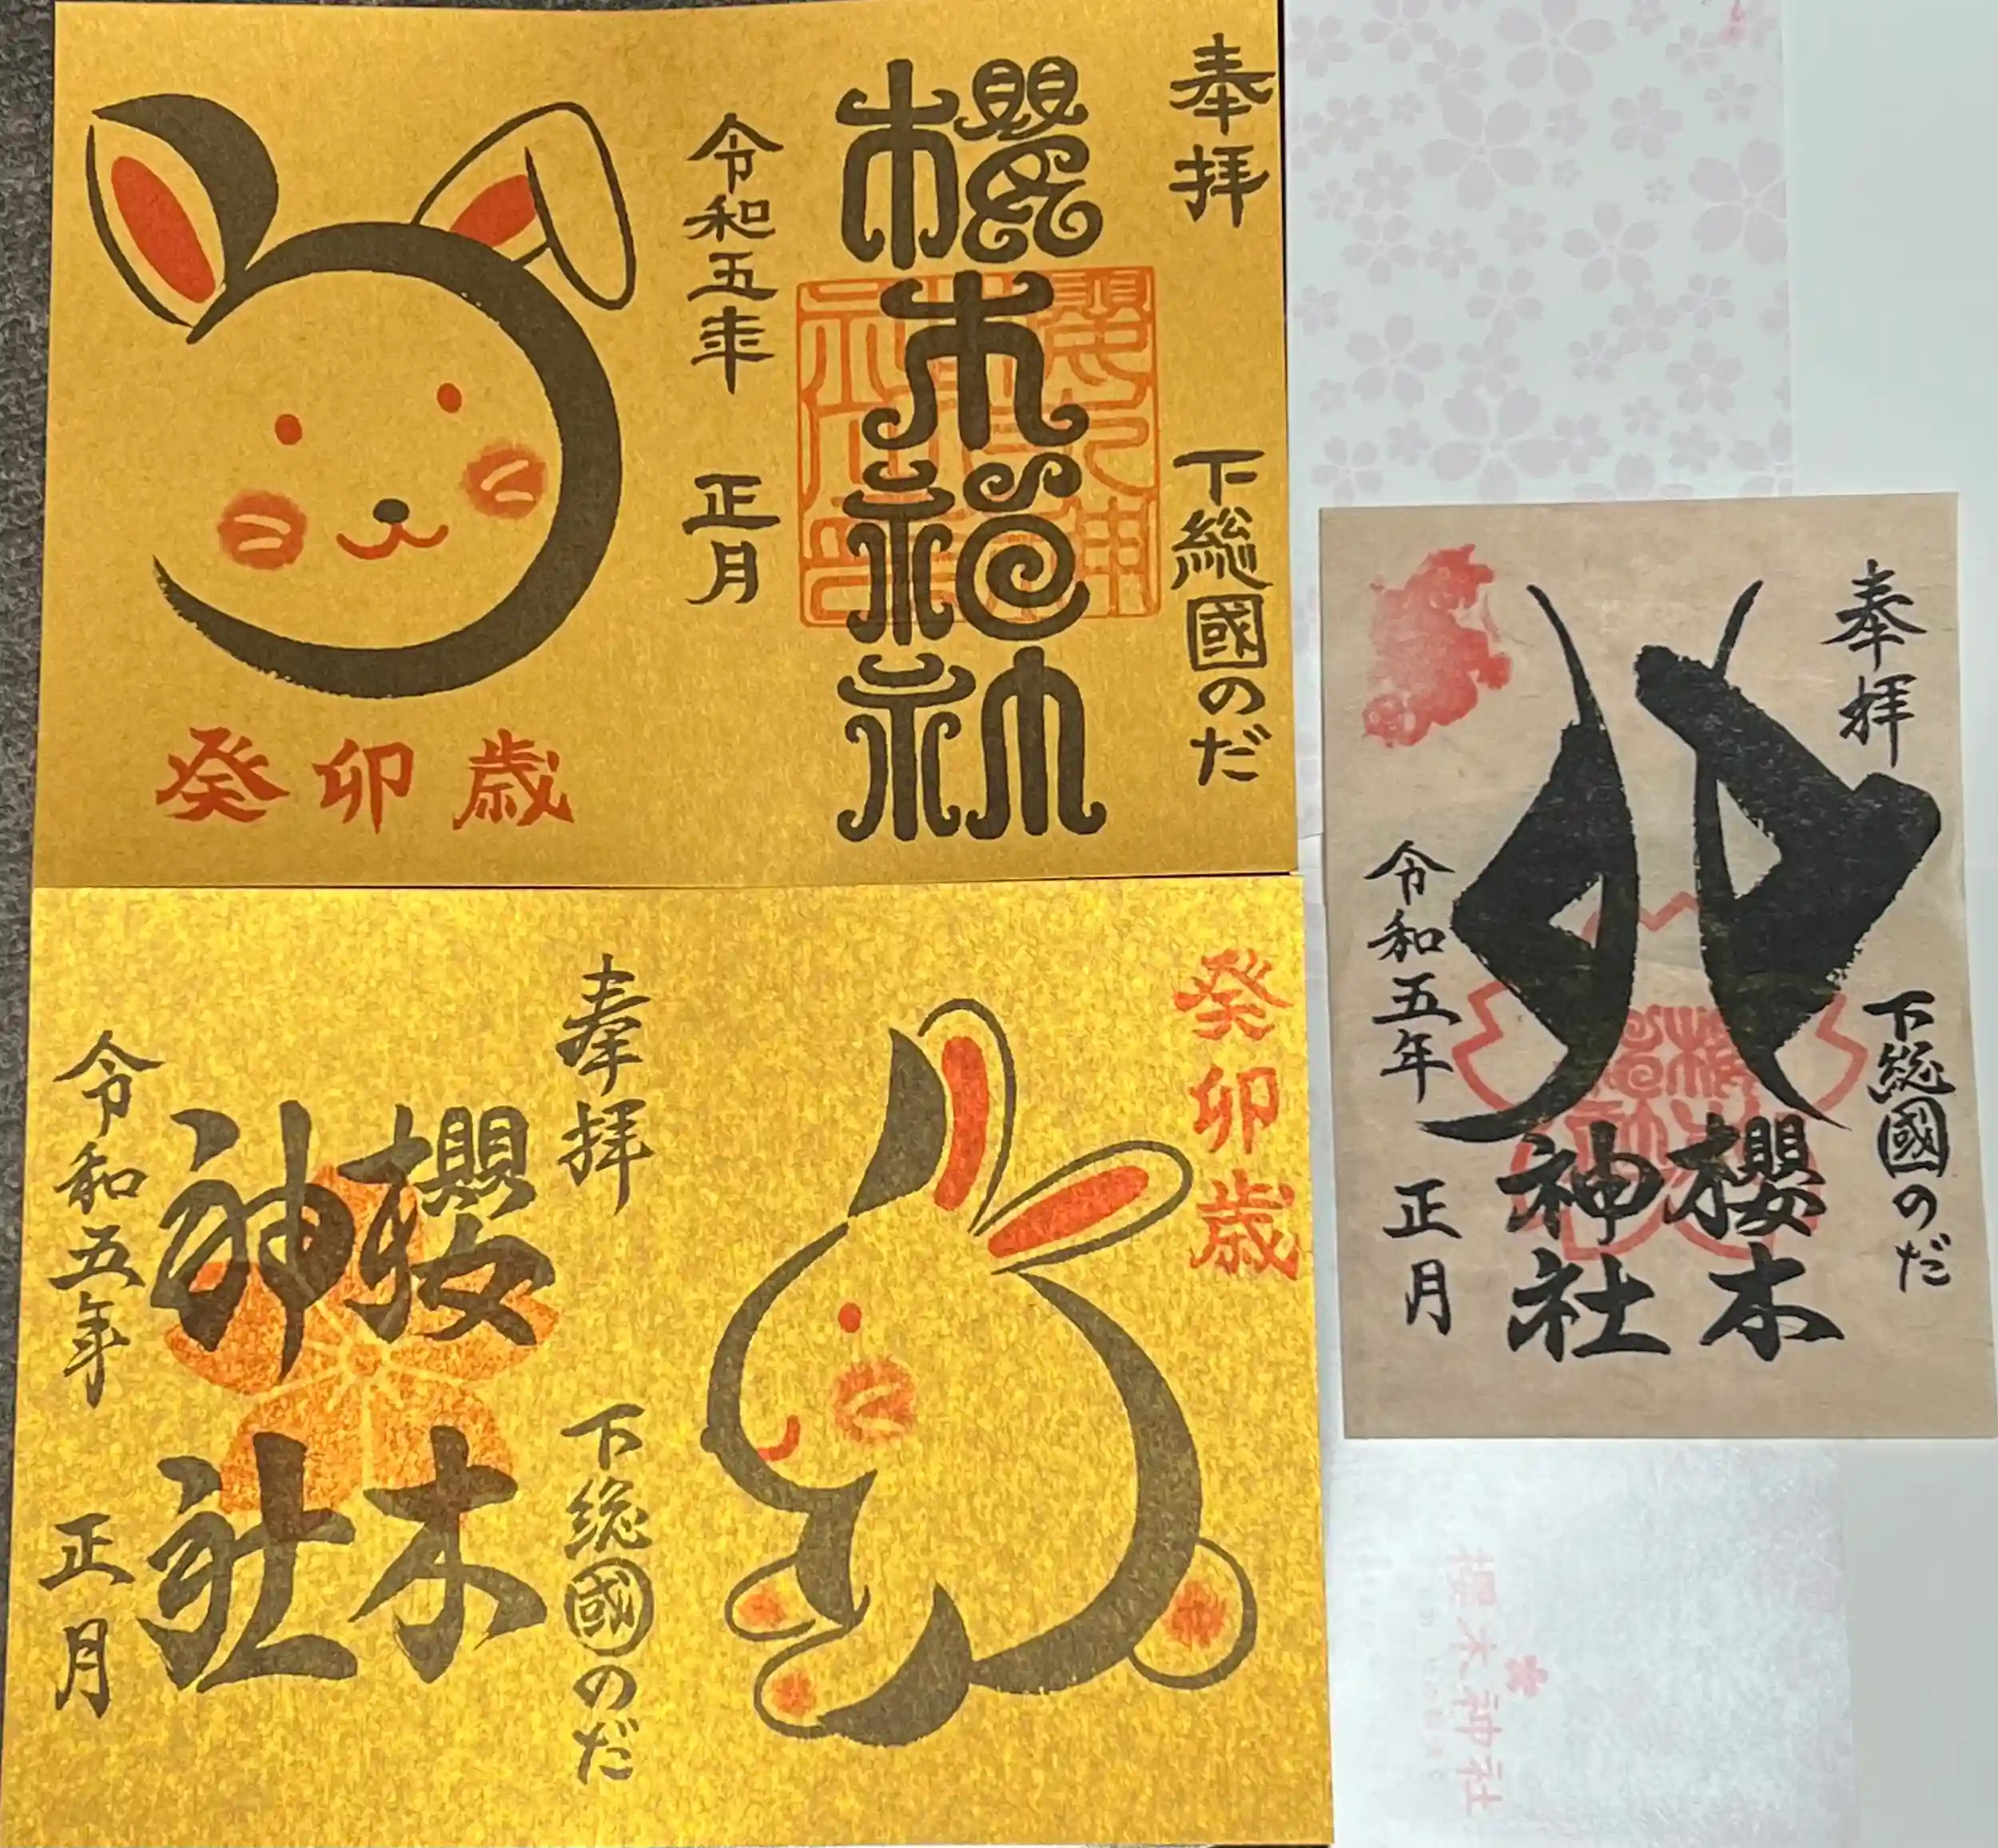 奉拝
下総國のだ
櫻木神社
令和五年
正月
癸卯歳
癸卯歳
奉拝
下総國のだ
櫻木
神社
令和五年
正月
奉拝
下総國のだ
卯
櫻木
神社
令和五年
正月
櫻木神社